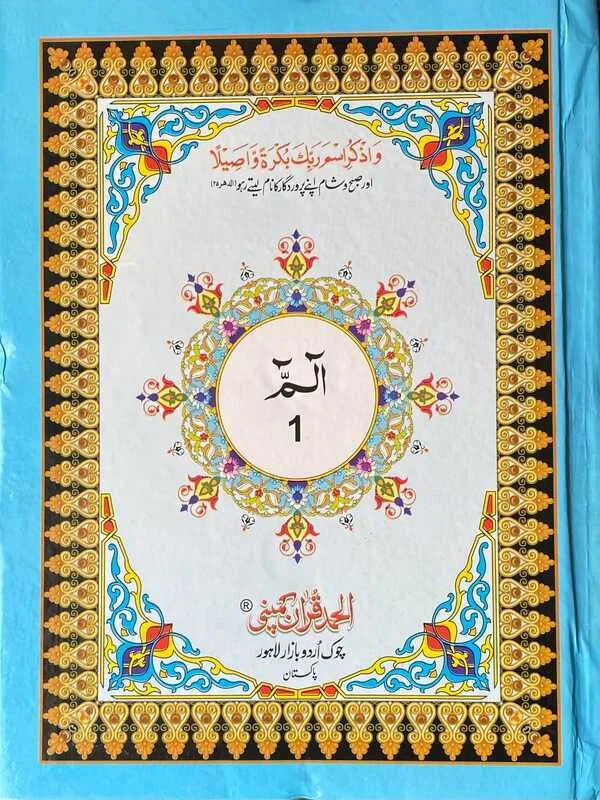 وَاذْكُرِ اسْمَ رَبِّكَ بُكْرَةً وَّاَصِيْلًا
اور صبح و شام اپنے پروردگار کا نام لیتے رہو (الدھر ۲۵)
الٓمّٓ
1
الحمد قُرآن کمپنی ®
چوک اُردو بازار لاہور
پاکستان